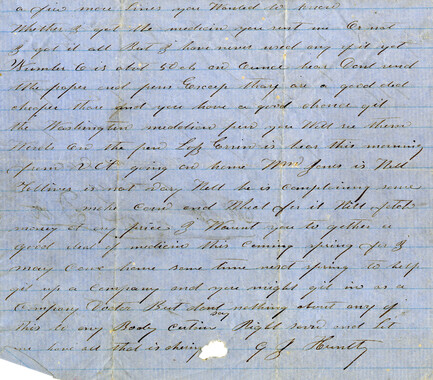 a few more lines you Wanted to know
Whether I got the medicin you sent me Or not
I got it all But I have never used any of it yet
is abot 50 cts an Ounce hear Dont send
the paper and pens Except thay are a good deal
cheaper there and you have a good chance git
the Washington medelion pen you Will see these
Words on the pen Lef Ervin is hear this morning
from R C T going on home Wm Jones is Well
Fellows is not Vary Well he is complaining some
make Corn and What for it Will fetch
money at any price I Waunt you to gether a
good deal of medicin this coming spring for I
may Come home some time next spring to help
git up a Company and you might git in as a
Company Doctor But dont say nothing about any of
this to any Body certin Right soon and let
me have all that is
G J Huntly